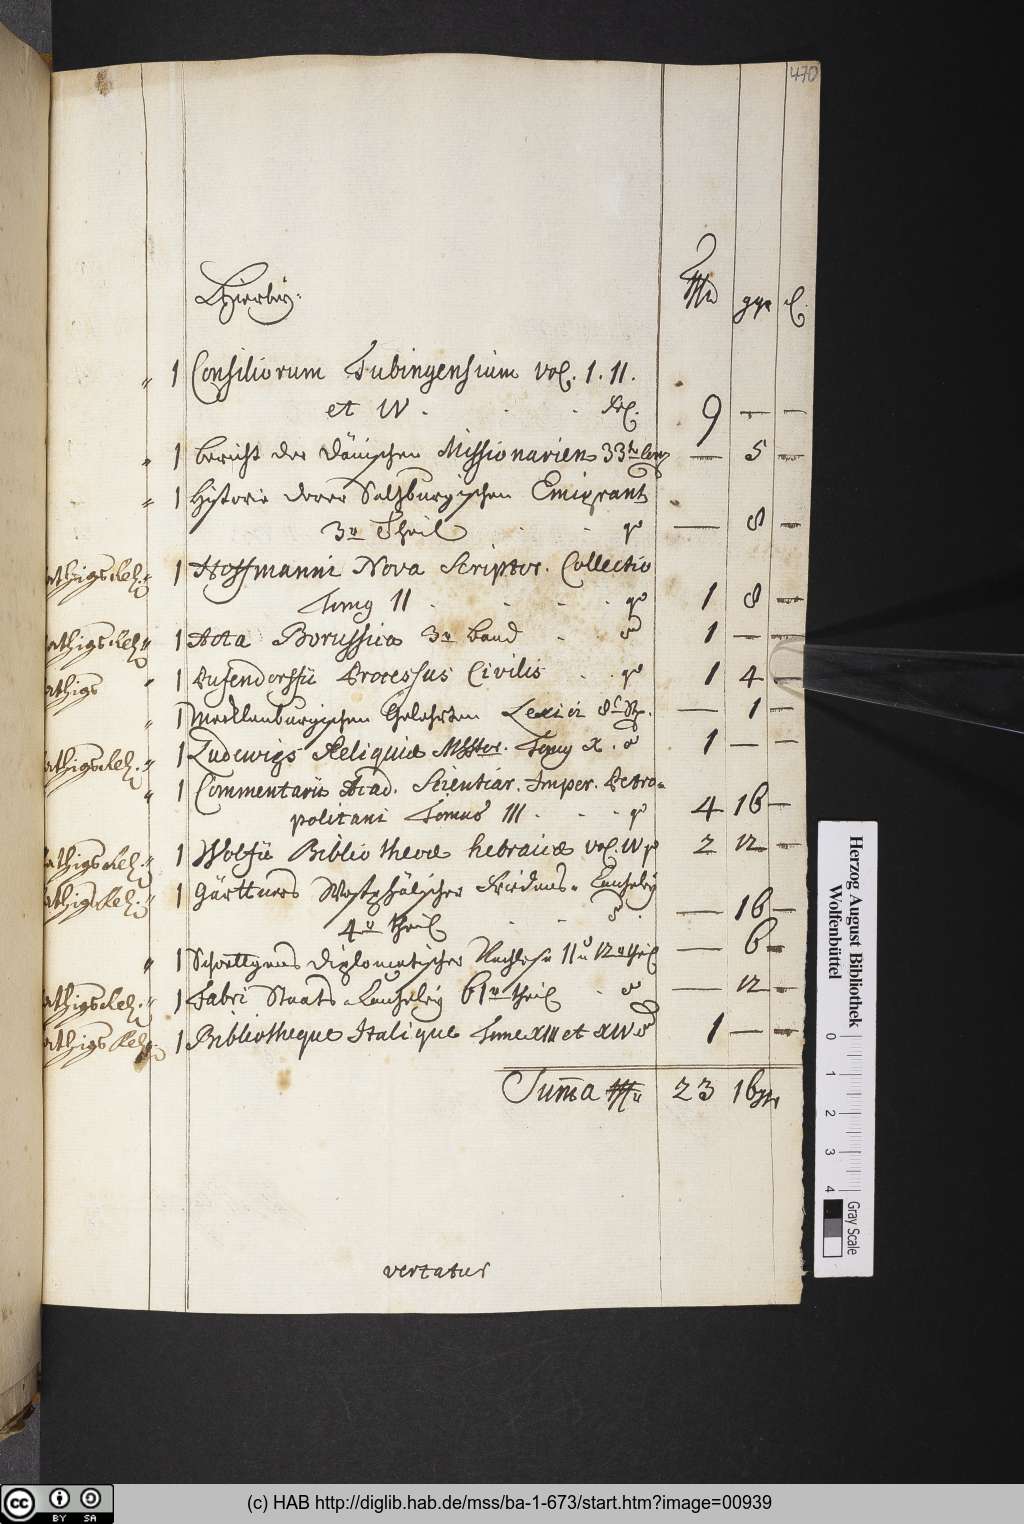 470
Hierbey:
ggr
1 Consiliorum Tubingensium vol. 1. II.
et IV . . . fol. 9 — —
1 Bericht der Dänischen Missionarien 33te — 5 —
1 Historie derer Saltzburgischen Emigrant
3r Theil . . 4o — 8 —
1 Hoffmanni Nova Scriptor. Collectio
Tomg II . . . 4o 1 8 —
1 Acta Borussica 3r Band . 8 1 — —
1 Pufendorffii Processus Civilis . . 4o 1 4 —
1 Mecklenburgischen Gelehrten Lexici 8t St. — 1 —
1 Ludewigs Reliquiæ MSStor. Tomg X. 8 1 — —
1 Commentarii Acad. Scientiar. Imper. Petro-
politani Tomus III . . . 4o 4 16 —
1 Wolfii Bibliothecæ hebraicæ vol. IV 4o 2 12 —
1 Gärttners Westphälischer Friedens-Cantzeley
4r Theil . . 8 — 16 —
1 Schöttgens diplomatischer Nachlese 11 u 12r Theil — 6 —
1 Fabri Staats-Cantzeley 61r Theil . 8 — 12 —
1 Bibliotheque Italique Tome XIII et XIV 8 1 — —
Summa 23 16 ggr
vertatur
Herzog August Bibliothek
Wolfenbüttel
0 1 2 3 4
Gray Scale
cc BY SA
(c) HAB http://diglib.hab.de/mss/ba-1-673/start.htm?image=00939